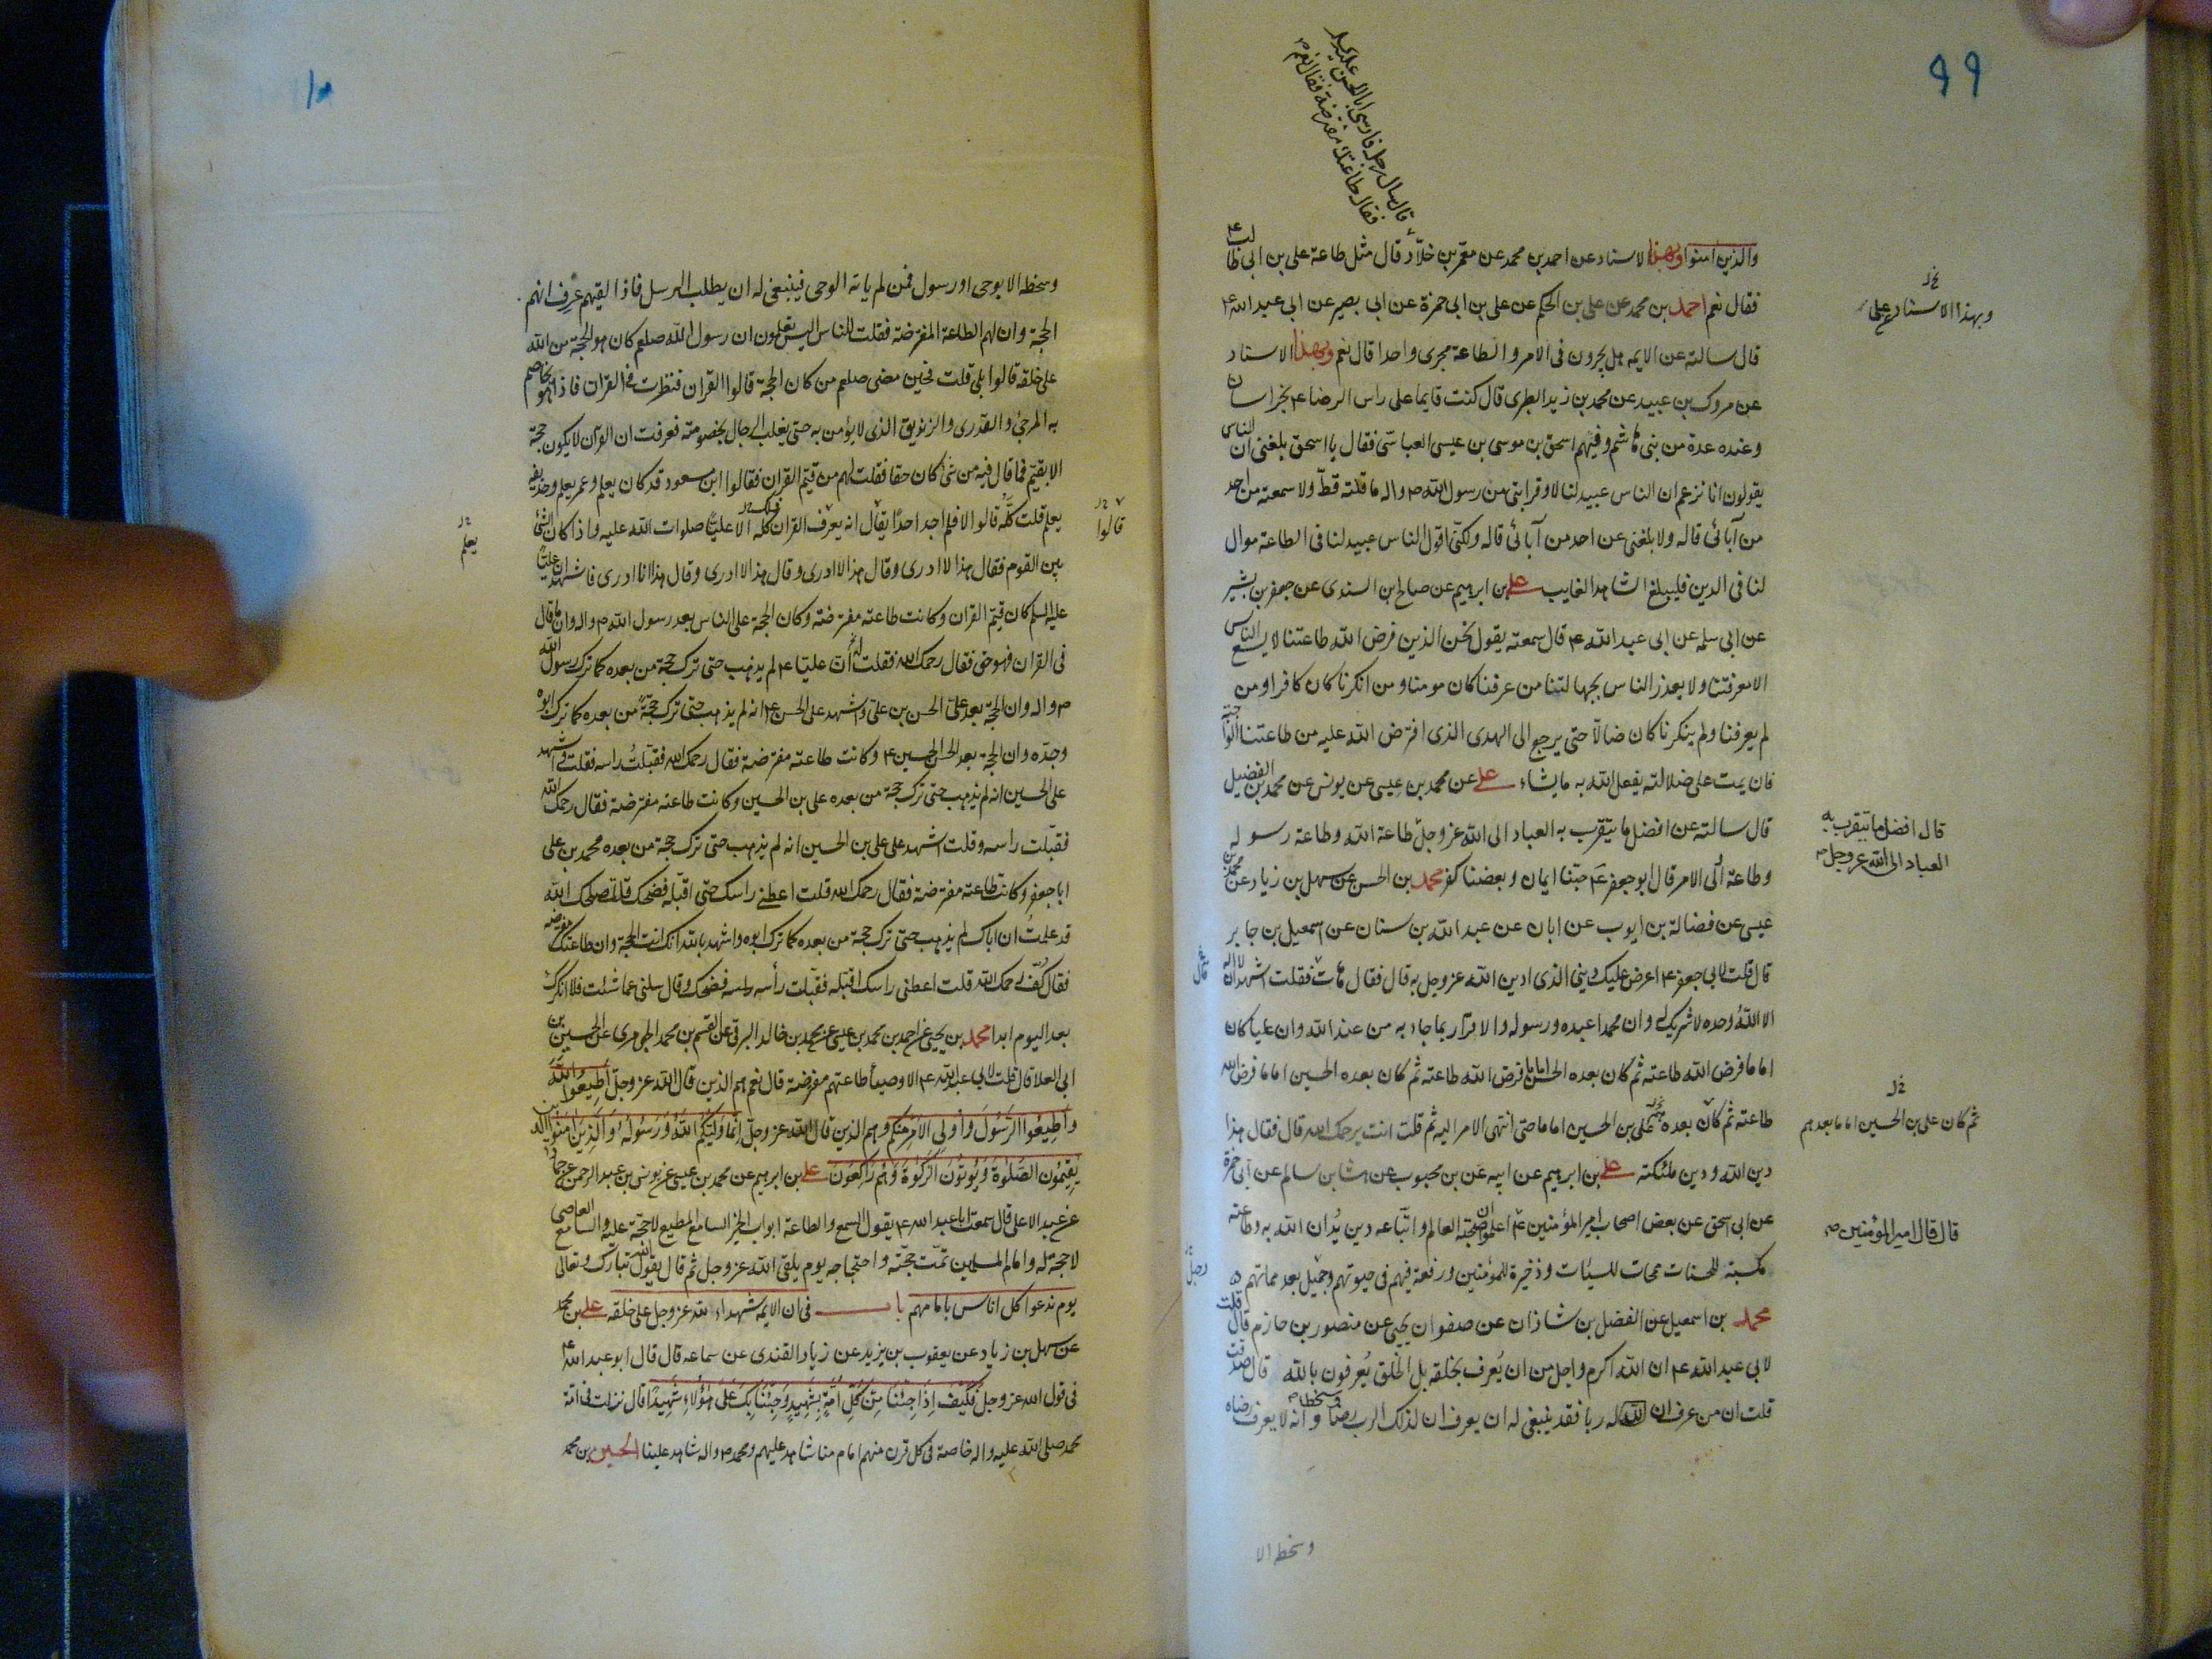 ٩٩
قال سال رجل فارسى ابا الحسن عليه السلم
فقال طاعتك مفترضة فقال نعم
والذين امنوا وبهذا الاسناد عن احمد بن محمد عن معمر بن خلاد قال مثل طاعة على بن ابى طالب ٤
فقال نعم احمد بن محمد عن على بن الحكم عن على بن ابى حمزة عن ابى بصير عن ابى عبد الله ٤
وبهذا الاسناد ع على
قال سالته عن الايمه هل يجرون فى الامر والطاعة مجرى واحدا قال نعم وبهذا الاسناد
عن مروك بن عبيد عن محمد بن زيد الطبرى قال كنت قايما على راس الرضا ٤ بخراسان
وعنده عدة من بنى هاشم وفيهم اسحق بن موسى بن عيسى العباسى فقال يا اسحق بلغنى ان الناس
يقولون انا نزعم ان الناس عبيد لنا لا وقرابتى من رسول الله ص واله ما قلته قط ولا سمعته من احد
من آبائى قاله ولا بلغنى عن احد من آبائى قاله ولكنى اقول الناس عبيد لنا فى الطاعة موال
لنا فى الدين فليبلغ الشاهد الغايب على بن ابرهيم عن صالح ابن السندى عن جعفر بن بشير
عن ابى سلمه عن ابى عبد الله ٤ قال سمعته يقول نحن الذين فرض الله طاعتنا لا يسع الناس
الا معرفتنا ولا يعذر الناس بجهالتنا من عرفنا كان مومنا ومن انكرنا كان كافرا ومن
لم يعرفنا ولم ينكرنا كان ضالا حتى يرجع الى الهدى الذى افترض الله عليه من طاعتنا الواجبة
فان يمت على ضلالته يفعل الله به ما يشاء على عن محمد بن عيسى عن يونس عن محمد بن الفضيل
قال سالته عن افضل ما يتقرب به العباد الى الله عز وجل طاعة الله وطاعة رسوله
قال افضل ما يتقرب به
العباد الى الله عز وجل
وطاعة أولى الامر قال ابو جعفر ٤ حبنا ايمان وبغضنا كفر محمد بن الحسن عن سهل بن زياد عن محمد بن
عيسى عن فضالة بن ايوب عن ابان عن عبد الله بن سنان عن اسمعيل بن جابر
قال قلت لابى جعفر ٤ اعرض عليك دينى الذى ادين الله عز وجل به قال فقال هات فقلت اشهد ان لا اله
الا الله وحده لا شريك له وان محمدا عبده ورسوله والاقرار بما جاء به من عند الله وان عليا كان
اماما فرض الله طاعته ثم كان بعده الحسن اماما فرض الله طاعته ثم كان بعده الحسين اماما فرض الله
طاعته ثم كان بعده على بن الحسين اماما حتى انتهى الامر اليه ثم قلت انت يرحمك الله قال فقال هذا
ثم كان على بن الحسين اماما بعدهم
دين الله ودين ملئكته على بن ابرهيم عن ابيه عن بن محبوب عن هشام بن سالم عن ابى حمزة
عن ابى اسحق عن بعض اصحاب امير المؤمنين ٤ اعلموا ان صحبة العالم واتباعه دين يدان الله به وطاعته
قال قال امير المؤمنين
مكسبة للحسنات ممحات للسيئات وذخيرة للمؤمنين ورفعة فيهم فى حيوتهم وجميل بعد مماتهم
محمد بن اسمعيل عن الفضل بن شاذان عن صفوان يحيى عن منصور بن حازم قال قلت
لابى عبد الله ٤ ان الله اكرم واجل من ان يعرف بخلقه بل الخلق يعرفون بالله قال صدقت
قلت ان من عرف ان له ربا فقد ينبغى له ان يعرف ان لذلك الرب رضا وسخطا وانه لا يعرف رضاه
وسخطه الا
وسخطه الا بوحى او رسول فمن لم ياته الوحى فينبغى له ان يطلب الرسل فاذا لقيهم عرف انهم
الحجة وان لهم الطاعة المفترضة فقلت للناس اليس تعلمون ان رسول الله صلعم كان هو الحجة من الله
على خلقه قالوا بلى قلت فحين مضى صلعم من كان الحجة قالوا القران فنظرت فى القران فاذا هو يخاصم
به المرجئ والقدرى والزنديق الذى لا يؤمن به حتى يغلب الرجال بخصومته فعرفت ان القران لا يكون حجة
الا بقيم فما قال فيه من شئ كان حقا فقلت لهم من قيم القران فقالوا ابن مسعود قد كان يعلم وعمر يعلم وحذيفه
يعلم قلت كله قالوا لا فلم اجد احدا يقال انه يعرف القران كله الا عليا صلوات الله عليه واذا كان الشئ
قالوا
يعلم
بين القوم فقال هذا لا ادرى وقال هذا لا ادرى وقال هذا لا ادرى وقال هذا انا ادرى فاشهد ان عليا
عليه السلم كان قيم القران وكانت طاعته مفترضة وكان الحجة على الناس بعد رسول الله ص واله وان ما قال
فى القران فهو حق فقال رحمك الله فقلت ان عليا ٤ لم يذهب حتى ترك حجة من بعده كما ترك رسول الله
ص واله وان الحجة بعد على الحسن بن على واشهد على الحسن ٤ انه لم يذهب حتى ترك حجة من بعده كما ترك ابوه
وجده وان الحجة بعد الحسن الحسين ٤ وكانت طاعته مفترضة فقال رحمك الله فقبلت راسه فقلت واشهد
على الحسين انه لم يذهب حتى ترك حجة من بعده على بن الحسين وكانت طاعته مفترضة فقال رحمك الله
فقبلت راسه وقلت اشهد على على بن الحسين انه لم يذهب حتى ترك حجة من بعده محمد بن على
ابا جعفر وكانت طاعته مفترضة فقال رحمك الله قلت اعطنى راسك حتى اقبله فضحك قلت اصلحك الله
قد علمت ان اباك لم يذهب حتى ترك حجة من بعده كما ترك ابوه واشهد بالله انك انت الحجة وان طاعتك مفترضه
فقال كف رحمك الله قلت اعطنى راسك اقبله فقبلت رأسه فضحك وقال سلنى عما شئت فلا انكرك
بعد اليوم ابدا محمد بن يحيى عن احمد بن محمد بن عيسى عن محمد بن خالد البرقى عن القسم بن محمد الجوهرى عن الحسين بن
ابى العلا قال قلت لابى عبد الله ٤ الاوصيا طاعتهم مفترضة قال نعم هم الذين قال الله عز وجل أطيعوا الله
وأطيعوا الرسول وأولى الأمر منكم وهم الذين قال الله عز وجل إنما وليكم الله ورسوله والذين امنوا الذين
يقيمون الصلوة ويؤتون الزكوة وهم راكعون على بن ابرهيم عن محمد بن عيسى عن يونس بن عبد الرحمن عن حماد
عن عبد الاعلى قال سمعت ابا عبد الله ٤ يقول السمع والطاعة ابواب الخير السامع المطيع لا حجة عليه والسامع العاصى
لا حجة له وامام المسلمين تمت حجته واحتجاجه يوم يلقى الله عز وجل ثم قال يقول الله تبارك وتعالى
يوم ندعوا كل اناس بامامهم باب فى ان الايمه شهداء لله عز وجل على خلقه على بن محمد
عن سهل بن زياد عن يعقوب بن يزيد عن زياد القندى عن سماعه قال قال ابو عبد الله ٤
فى قول الله عز وجل فكيف إذا جئنا من كل امة بشهيد وجئنا بك على هؤلاء شهيدا قال نزلت فى امة
محمد صلى الله عليه واله خاصة فى كل قرن منهم امام منا شاهد عليهم ومحمد ص واله شاهد علينا الحسين بن محمد